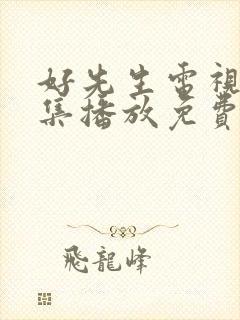 好先生電視
集播放免費
飛龍峰